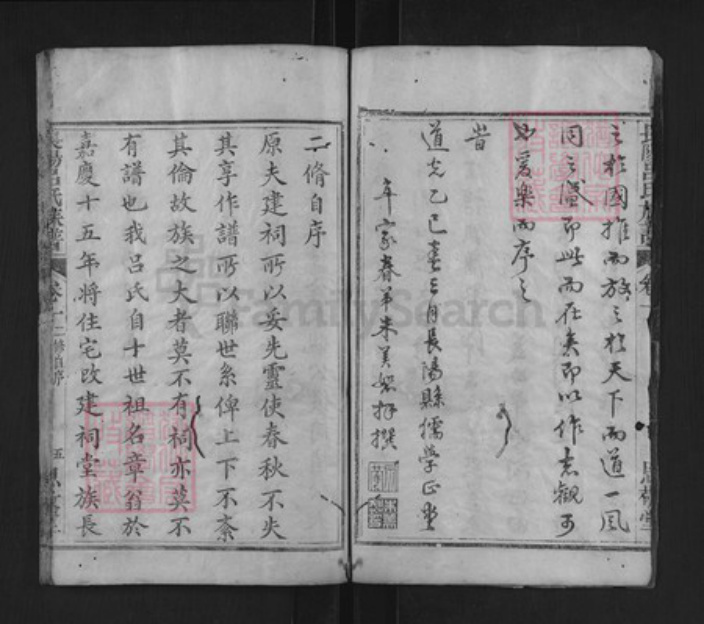 之於國推而放之於天下而道一風
同之盛即此而在矣即以作志觀可
也爰樂而序之
旹
道光乙巳春三月長陽縣儒學正堂
年家眷弟朱美
拜撰
二脩自序
原夫建祠所以妥先靈使春秋不失
其享作譜所以聯世系俾上下不紊
其倫故族之大者莫不有祠亦莫不
有譜也我呂氏自十世祖名章翁於
嘉慶十五年將住宅改建祠堂族長
長陽呂氏族譜
卷一
二修自序
五
FamilySearch